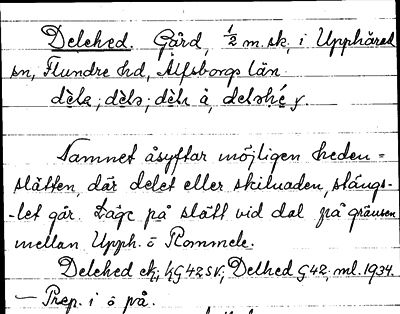 Delehed. Gård, ½ m. sk. i Upphärad
sn, Flundre hd, Älfsborgs län
dèlə; dèlə; dèlı à, deləhé y.
Namnet åsyftar möjligen heden =
slätten, där delet eller skilnaden, stängs-
-let går. Läge på slätt vid dal på gränsen
mellan Upph. o Rommele.
Delehed ek; kG42SV; Delhed G42; ml. 1934.
— Prep. i o på.